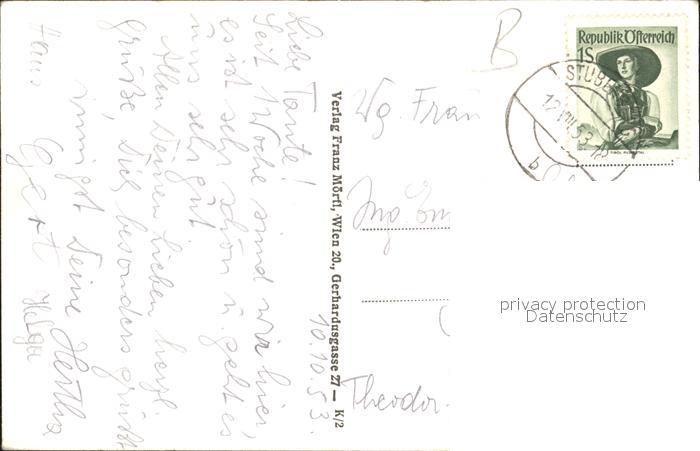 10.10.53.
Liebe Tante!
Seit 1 Woche sind wir hier,
es ist sehr schön u. geht es
uns sehr gut
Allen Deinen Lieben herzl.
grüße, Dich besonders grüßt
innigst Deine Hertha
Gert Helga
Hans
Verlag Franz Mörtl, Wien 20., Gerhardusgasse 27 — K/2
B
Wg. Frau
Ing
Theodor.
Republik Österreich
1S
STUBE
12.
53
b
privacy protection
Datenschutz